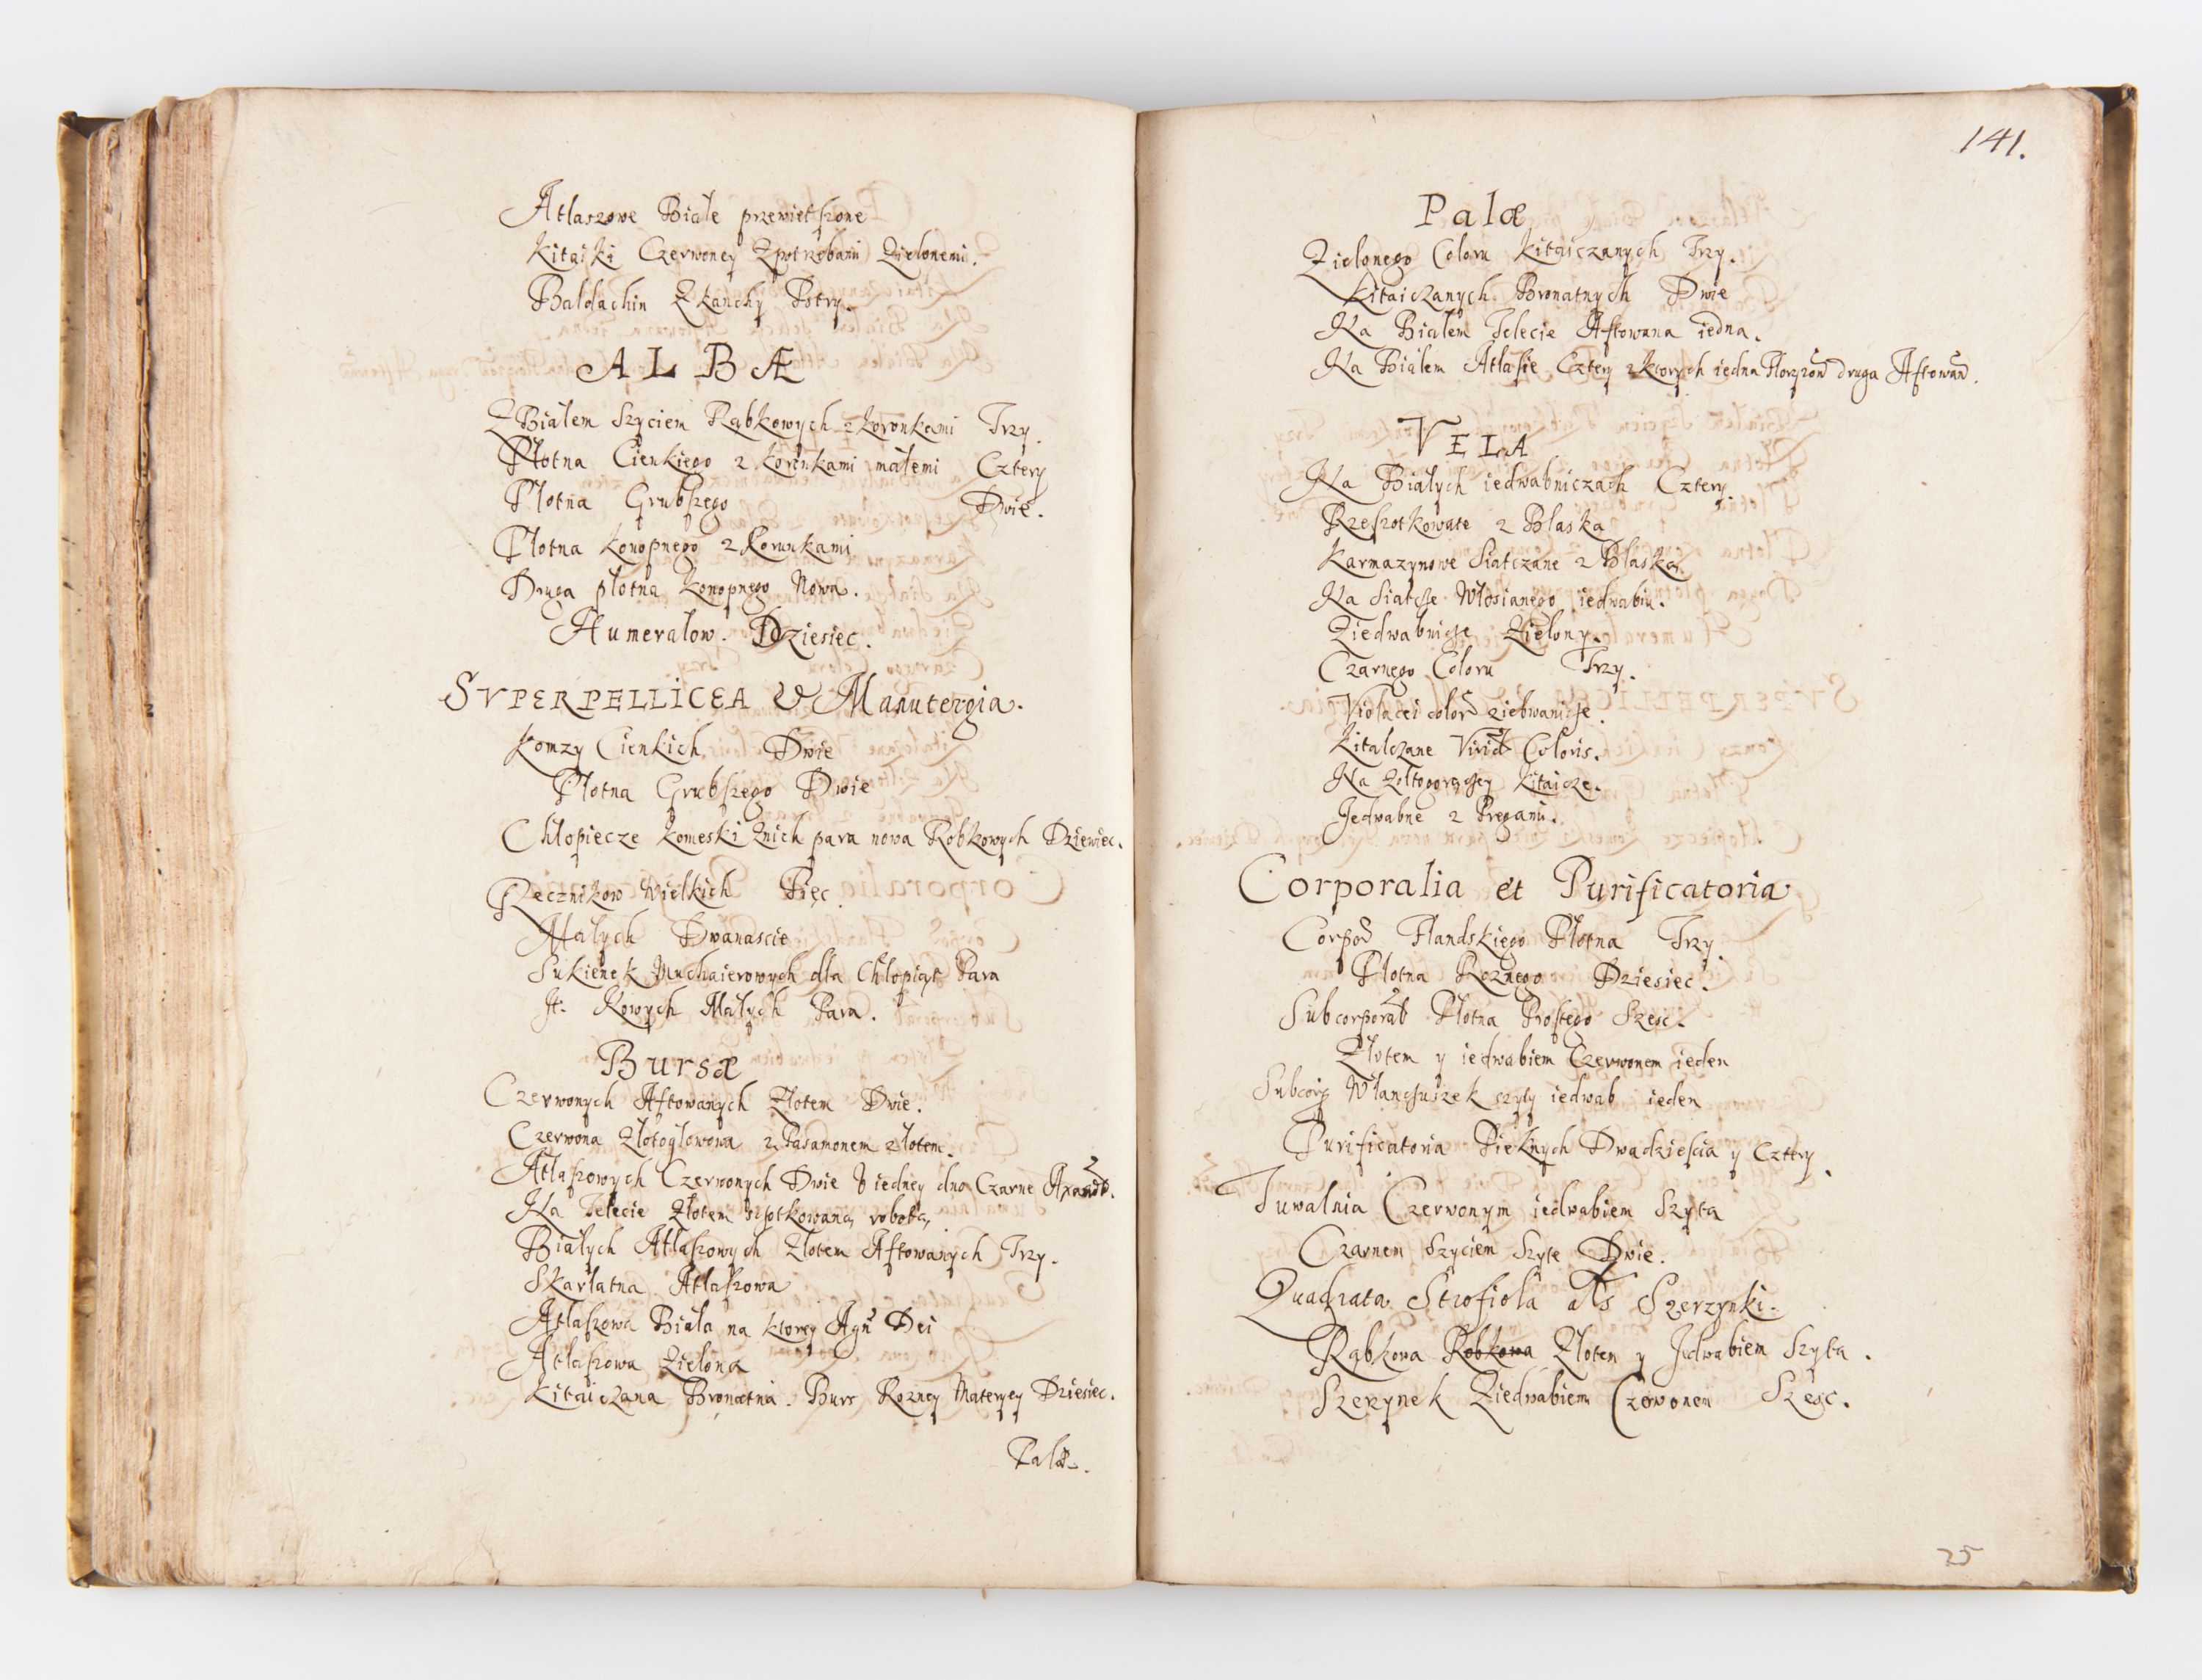 Atlaszowe Biale przewietszone
Kitaiki Czerwoney Zpotrzebami Zielonemi.
Baldachin Z kanchy Pstry.
ALBÆ
Z Białem Szyciem Rąbkowych z koronkami Trzy.
Płotna Cienkiego z koronkami małemi Cztery
Płotna Grubszego Dwie.
Płotna konopnego z Korunkami
Druga płotna konopnego Nowa.
Humerałow. Dziesiec.
SVPERPELLICEA & Manutergia.
Komzy Cienkich Dwie
Płotna Grubszego Dwie
Chłopiecze komeski Znich para nowa Robkowych Dziewiec.
Ręcznikow Wielkich Pięc.
Małych Dwanascie
Sukienek Muchaierowych dla Chłopiąt Para
It: Nowych Małych Para.
Bursæ
Czerwonych Aftowanych Złotem Dwie.
Czerwona Złotogłowowa z Pasamonem złotem.
Atłaszowych Czerwonych Dwie V iedney dno Czarne
Na Telecie Złotem robotą
Białych Atłaszowych Złotem Aftowanych Trzy.
Skarłatna Atłaszowa
Atłaszowa Biała na ktorey Agn Dei
Atłaszowa Zielona
Kitaiczana Bronatna. Burs Rozney Materyey Dziesiec.
Palæ.
141.
Palæ
Zielonego Coloru Kitaiczanych Trzy.
Kitaiczanych Bronatnych Dwie
Na Białem Telecie Aftowana iedna.
Na Białem Atłasie Cztery z ktorych iedna druga Aftowan.
VELA
Na Białych iedwabniczach Cztery.
Rzeszotkowate z Blaską
Karmazynowe Siatczane z Blaską
Na Siatcze Włosianego iedwabiu.
Ziedwabnicze Zielony.
Czarnego Coloru Trzy.
Violacei color ziedwanicze.
Kitaiczane Virid Coloris.
Na zołtogorączey kitaicze.
Jedwabne z Pregami.
Corporalia et Purificatoria
Corpor Flandskiego Płotna Trzy.
Płotna Roznego Dziesiec.
Subcorporal Płotna Prostego Szesc.
Złotem y iedwabiem Czerwonem ieden
Subcorp Włanczuszek szyty iedwab ieden
Purificatoria Pieknych Dwadziescia y Cztery.
Tuwalnia Czerwonym iedwabiem Szyta
Czarnem szyciem Szyte Dwie.
Quadrata Strofiola als Szerzynki.
Rąbkowa Robkowa Złotem y Jedwabiem Szyta.
Szerzynek Ziedwabiem Czerwonem Szesc.
25